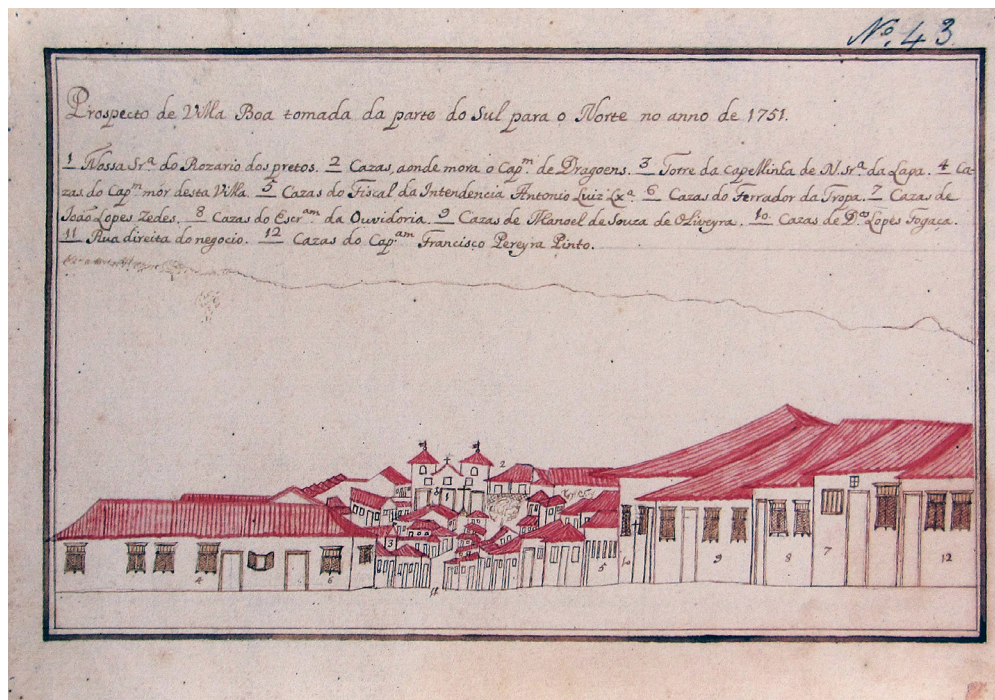 Nº. 43.
Prospecto de Villa Boa tomada da parte do Sul para o Norte no anno de 1751.
1 Nossa Sr.ª do Rozario dos pretos. 2 Cazas, aonde mora o Cap.m de Dragoens. 3 Torre da capellinha de N. Sr.ª da Lapa. 4 Ca-
zas do Cap.m mór desta Villa. 5 Cazas do Fiscal da Intendencia Antonio Luiz Lx.ª 6 Cazas do Ferrador da Tropa. 7 Cazas de
João Lopes Zedes. 8 Cazas do Escr.am da Ouvidoria. 9 Cazas de Manoel de Souza de Oliveyra. 10. Cazas de D.os Lopes Fogaça.
11 Rua direita do negocio. 12 Cazas do Cap.am Francisco Pereyra Pinto.
2
1
3
4
6
11
5
10
9
8
7
12